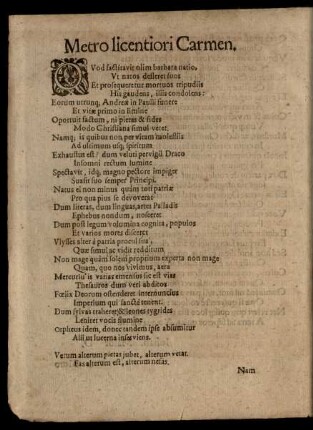 Metro licentiori Carmen.
QVod factitavit olim barbara natio,
Vt natos defleret suos
Et prosequeretur mortuos tripudiis
His gaudens, illis condolens:
Eorum utrunq; Andreæ in Paulli funere
Et vitæ primo in limine
Oportuit factum, ni pietas & fides
Modo Christiana simul vetet.
Namq; is quibus non per vitam
Ad ultimum usq; spiritum
Exhaustus est? dum veluti pervigil Draco
Insomni rectum lumine
Spectavit, idq; magno pectore impiger
Suasit suo semper Principi.
Natus ei non minus quàm toti patriæ
Pro qua pius se devoverat
Dum literas, dum linguas, artes Palladis
Ephebus nondum, nosceret
Dum post legum volumina cognita, populos
Et varios mores disceret
Vlysses alter á patria
Quæ simul ac vidit redditum
Non mage quàm soleni propitium experta non mage
Quam, quo nos vivimus, aëra
Mercurii is varias ementitus sic est vias
Thesauros dum veri abditos
Fœlix Deorum ostenderet internuncius
Imperium qui sanctè tenent:
Dum sylvas traheret, & leones tygrides
Leniret vocis flumine
Orpheus idem, donec tandem ipse absumitur
Aliis ut lucerna inserviens.
Verum alterum pietas jubet, alterum vetat.
Fas alterum est, alterum nefas.
Nam